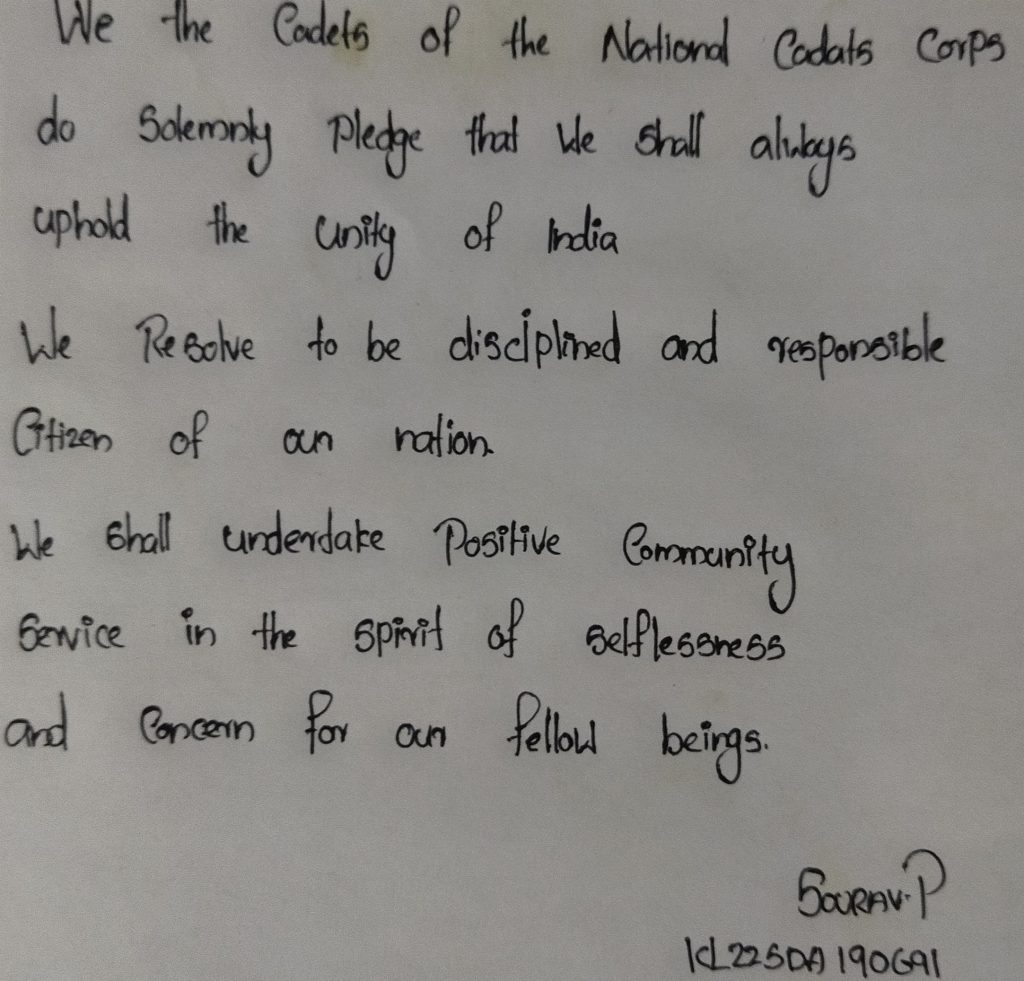 We the Cadets of the National Cadats Corps
do Solemnly Pledge that We Shall always
uphold the unity of India
We Resolve to be disciplined and responsible
Citizen of our nation.
We Shall undertake Positive Community
Service in the spirit of selflessness
and Concern for our fellow beings.
SOURAV.P
KL22SDA190691